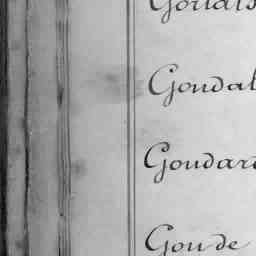 Goudal
Goudard
Goude